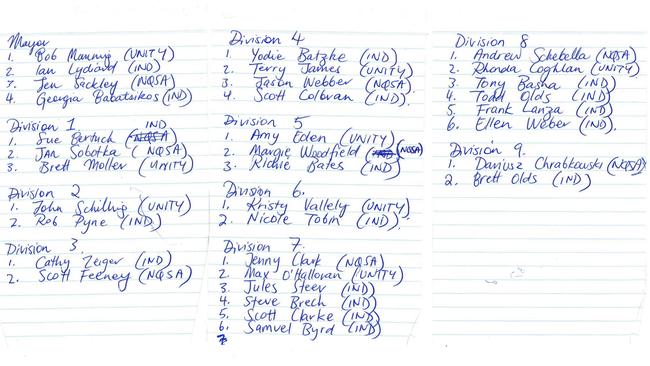 Mayor
1. Bob Manning (UNITY)
2. Ian Lydiard (IND)
3. Jen Sackley (NQSA)
4. Georgia Babatsikos (IND)
Division 1 IND
1. Sue Bertuch (NQSA)
2. Jan Sobotka (NQSA)
3. Brett Moller (UNITY)
Division 2
1. John Schilling (UNITY)
2. Rob Pyne (IND)
Division 3
1. Cathy Zeiger (IND)
2. Scott Feeney (NQSA)
Division 4
1. Yodie Batzke (IND)
2. Terry James (UNITY)
3. Jason Webber (NQSA)
4. Scott Colbran (IND)
Division 5
1. Amy Eden (UNITY)
2. Margie Woodfield (NQSA)
3. Richie Bates (IND)
Division 6.
1. Kristy Vallely (UNITY)
2. Nicole Tobin (IND)
Division 7.
1. Jenny Clark (NQSA)
2. Max O'Halloran (UNITY)
3. Jules Steer (IND)
4. Steve Brech (IND)
5. Scott Clarke (IND)
6. Samuel Byrd (IND)
7
Division 8
1. Andrew Schebella (NQSA)
2. Rhonda Coghlan (UNITY)
3. Tony Basha (IND)
4. Todd Olds (IND)
5. Frank Lanza (IND)
6. Ellen Weber (IND).
Division 9.
1. Dariusz Chrabkowski (NQSA)
2. Brett Olds (IND)